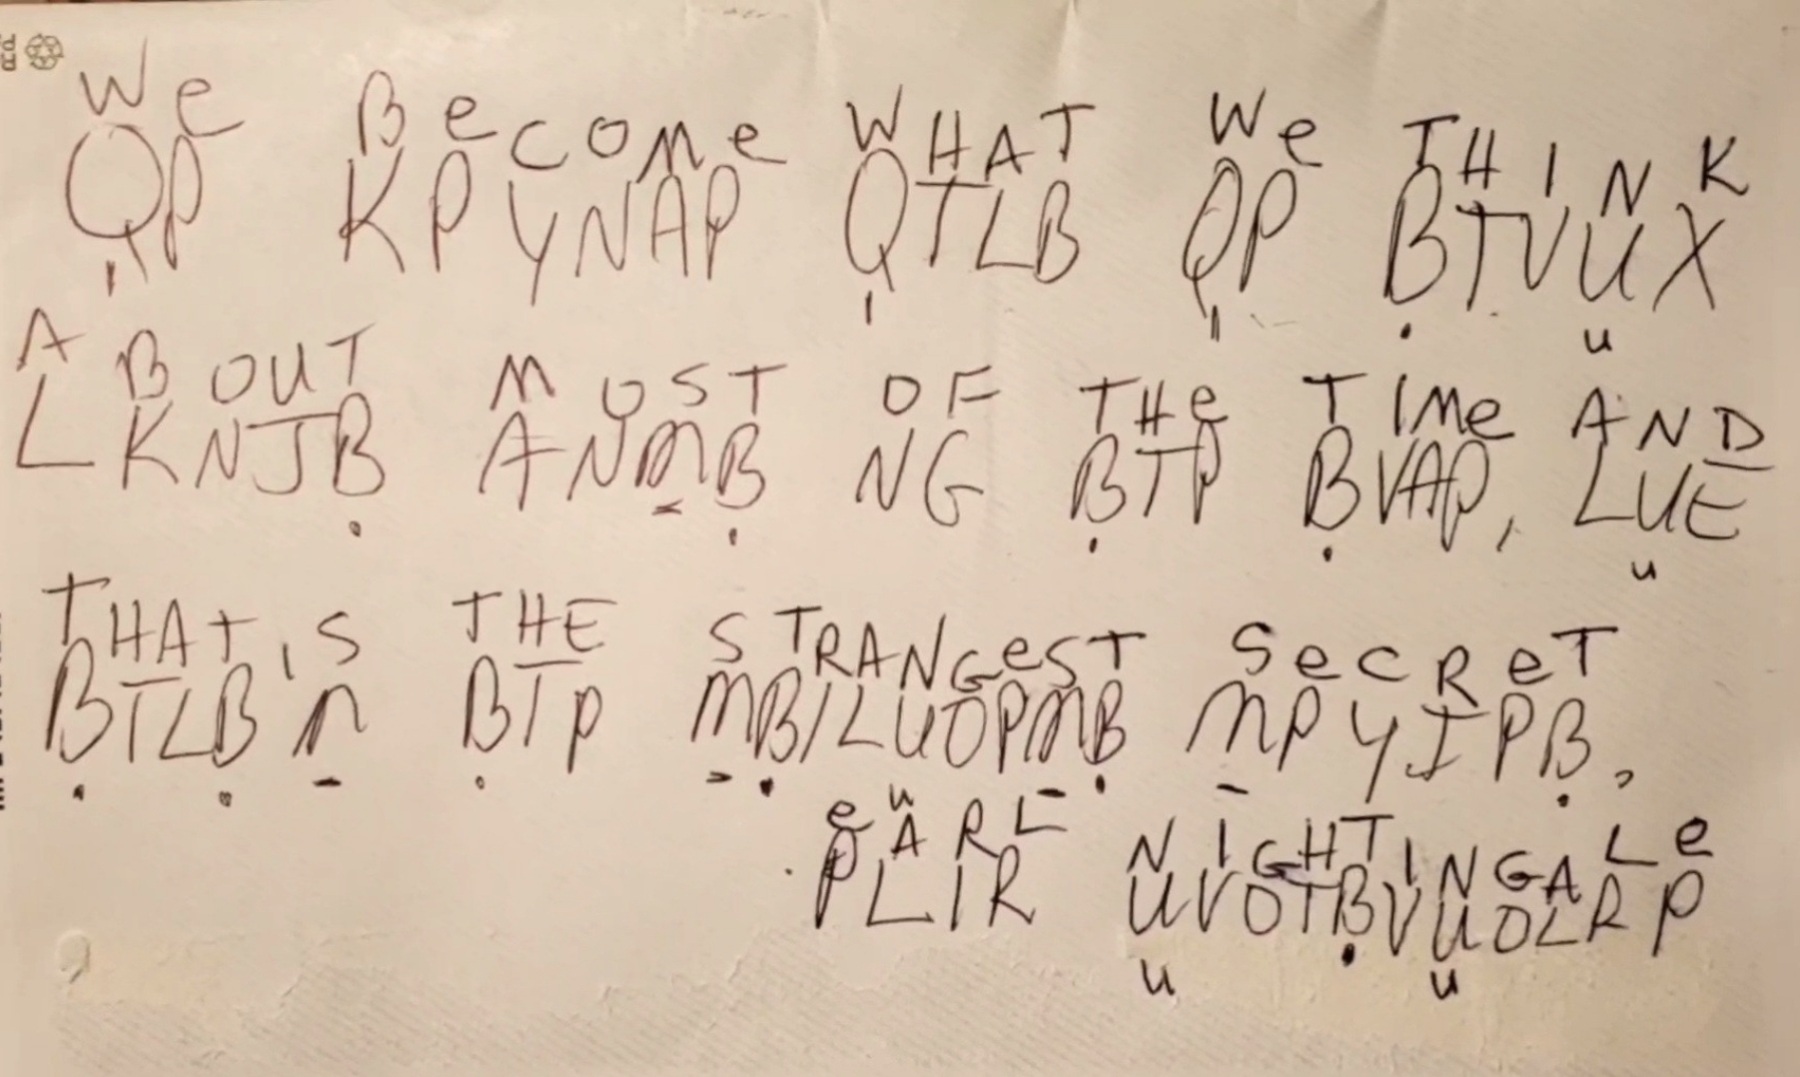 We BecOme WHAT We THINK
QP KPYNAP QTLB QP BTVUX
ABOUT MOST OF THe TIMe AND
LKNJB ANMB NG BTP BVAP, LUE
THAT IS THE STRANGeST SecReT
BTLB M BTP MBILUOPMB MPYIPB.
eARL NIGHTINGALe
PLIR UVOTBVUOLRP